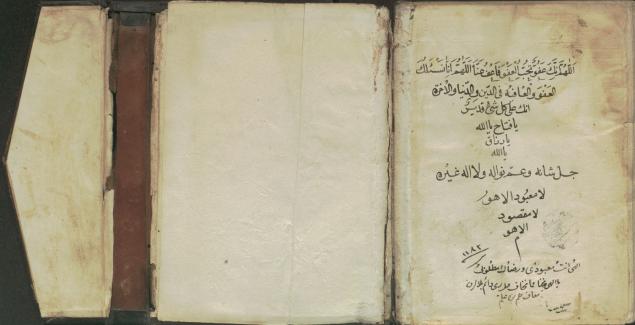 اللهم انك عفو تحب العفو فاعف عنا اللهم انا نسئلك
العفو والعافيه فى الدين والدنيا والآخرة
انك على كل شئ قدير
يا فتاح يا الله
يا رزاق
يا الله
جل شانه وعم نواله ولا اله غيره
لا معبود الا هو
لا مقصود
الا هو
م
١١٨٢
الهى انت معبودى ورضاك مطلوبى